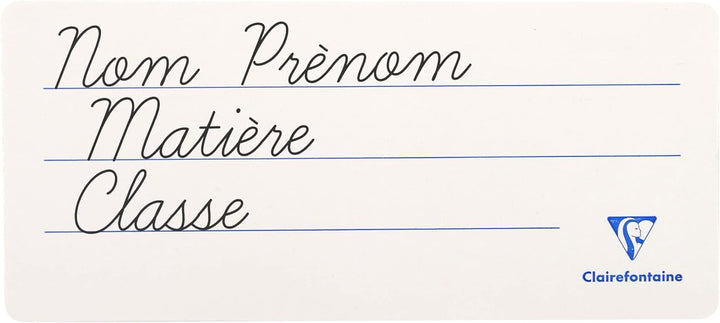 Nom Prènom
Matière
Classe
Clairefontaine